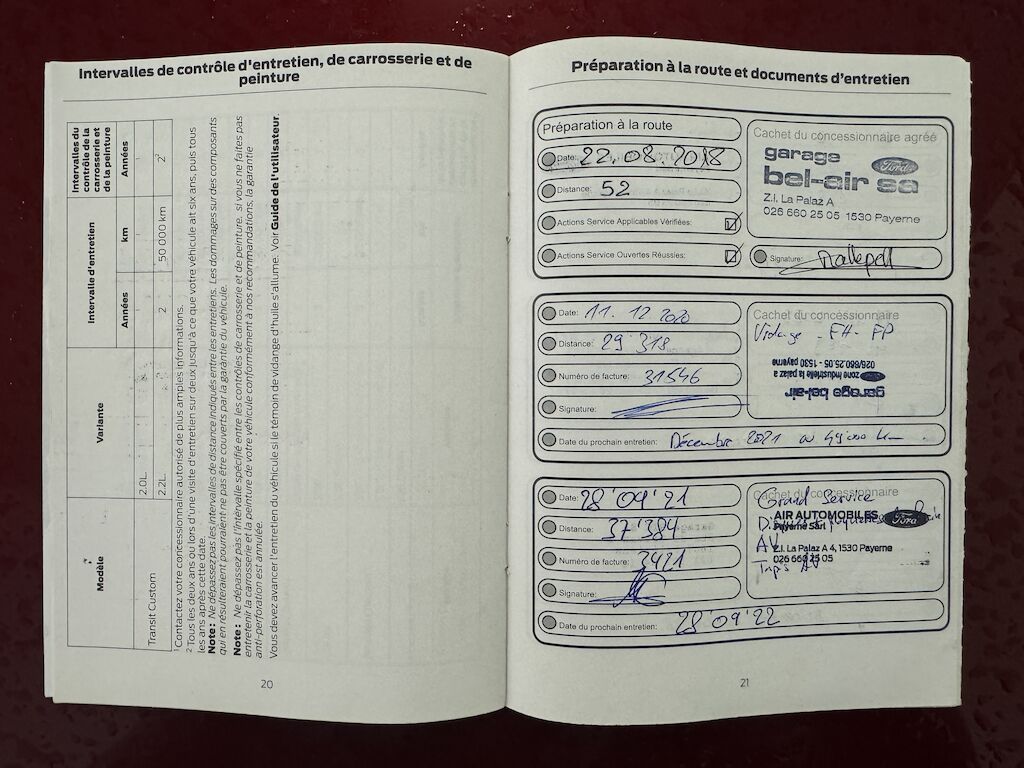 Intervalles de contrôle d'entretien, de carrosserie et de
peinture
Modèle
Variante
Intervalle d'entretien
Intervalles du
contrôle de la
carrosserie et
de la peinture
Années
km
Années
Transit Custom
2.0L
2.2L
2
50 000 km
2²
¹ Contactez votre concessionnaire autorisé de plus amples informations.
² Tous les deux ans ou lors d'une visite d'entretien sur deux jusqu'à ce que votre véhicule ait six ans, puis tous
les ans après cette date.
Note: Ne dépassez pas les intervalles de distance indiqués entre les entretiens. Les dommages sur des composants
qui en résulteraient pourraient ne pas être couverts par la garantie du véhicule.
Note: Ne dépassez pas l'intervalle spécifié entre les contrôles de carrosserie et de peinture. si vous ne faites pas
entretenir la carrosserie et la peinture de votre véhicule conformément à nos recommandations, la garantie
anti-perforation est annulée.
Vous devez avancer l'entretien du véhicule si le témoin de vidange d'huile s'allume. Voir Guide de l'utilisateur.
20
Préparation à la route et documents d'entretien
Préparation à la route
Date: 22.08.2018
Distance: 52
Actions Service Applicables Vérifiées:
Actions Service Ouvertes Réussies:
Cachet du concessionnaire agréé
garage
bel-air sa
Ford
Z.I. La Palaz A
026 660 25 05 1530 Payerne
Signature:
Date: 11. 12 2020
Distance: 29 318
Numéro de facture: 31546
Signature:
Cachet du concessionnaire
Vidage FH - FP
garage bel-air
zone industrielle la palaz a
026/660.25.05 - 1530 payerne
Date du prochain entretien: Décembre 2021 ou 49000 km.
Date: 28'09'21
Distance: 37'384
Numéro de facture: 3421
Signature:
Cachet du concessionnaire
Grand Service
AIR AUTOMOBILES
Payerne Sàrl
Ford
AV
Z.I. La Palaz A 4, 1530 Payerne
026 660 25 05
AV
Date du prochain entretien: 28'09'22
21